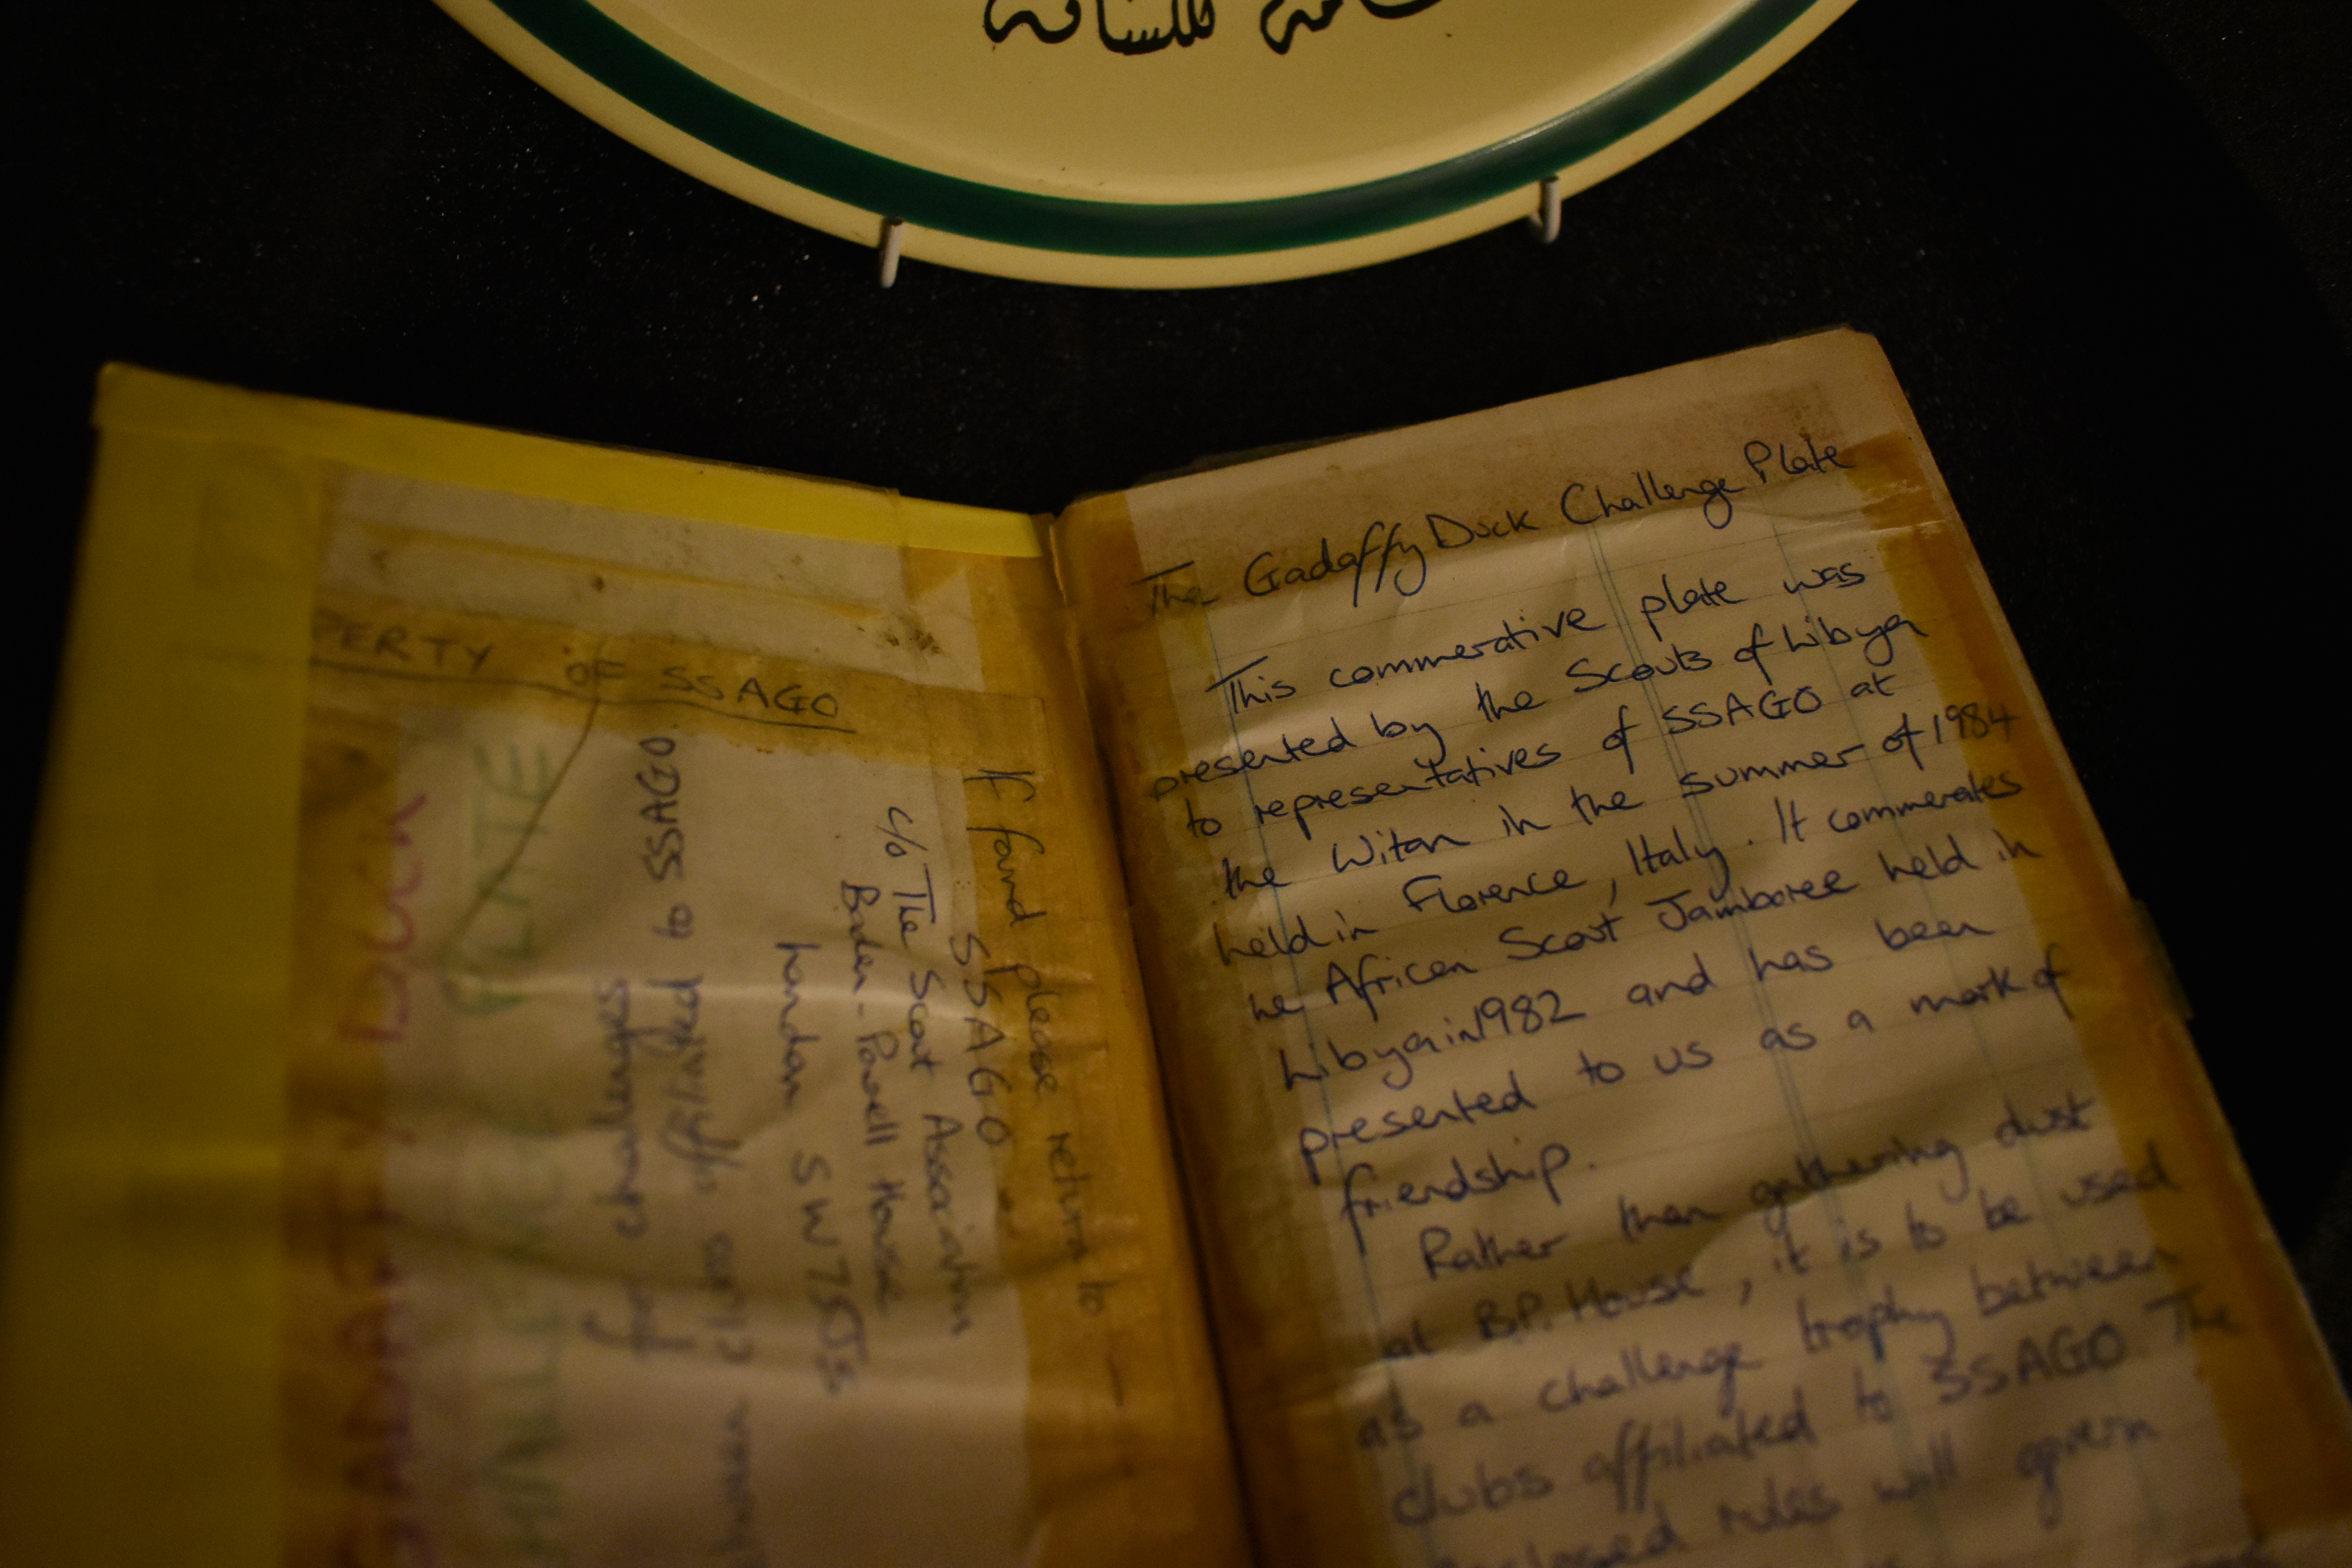 للسنافة
PERTY OF SSAGO
GADAFFY DUCK
CHALLENGE PLATE
for challenges
between clubs affiliated to SSAGO.
If found please return to —
SSAGO
c/o The Scout Association
Baden-Powell House
London SW7 5JS
The Gadaffy Duck Challenge Plate
This commerative plate was
presented by the Scouts of Libya
to representatives of SSAGO at
the Witan in the summer of 1984
held in Florence, Italy. It commerates
he African Scout Jamboree held in
Libya in 1982 and has been
presented to us as a mark of
friendship.
Rather than gathering dust
at B.P. House, it is to be used
as a challenge trophy between
clubs affiliated to SSAGO The
enclosed rules will govern